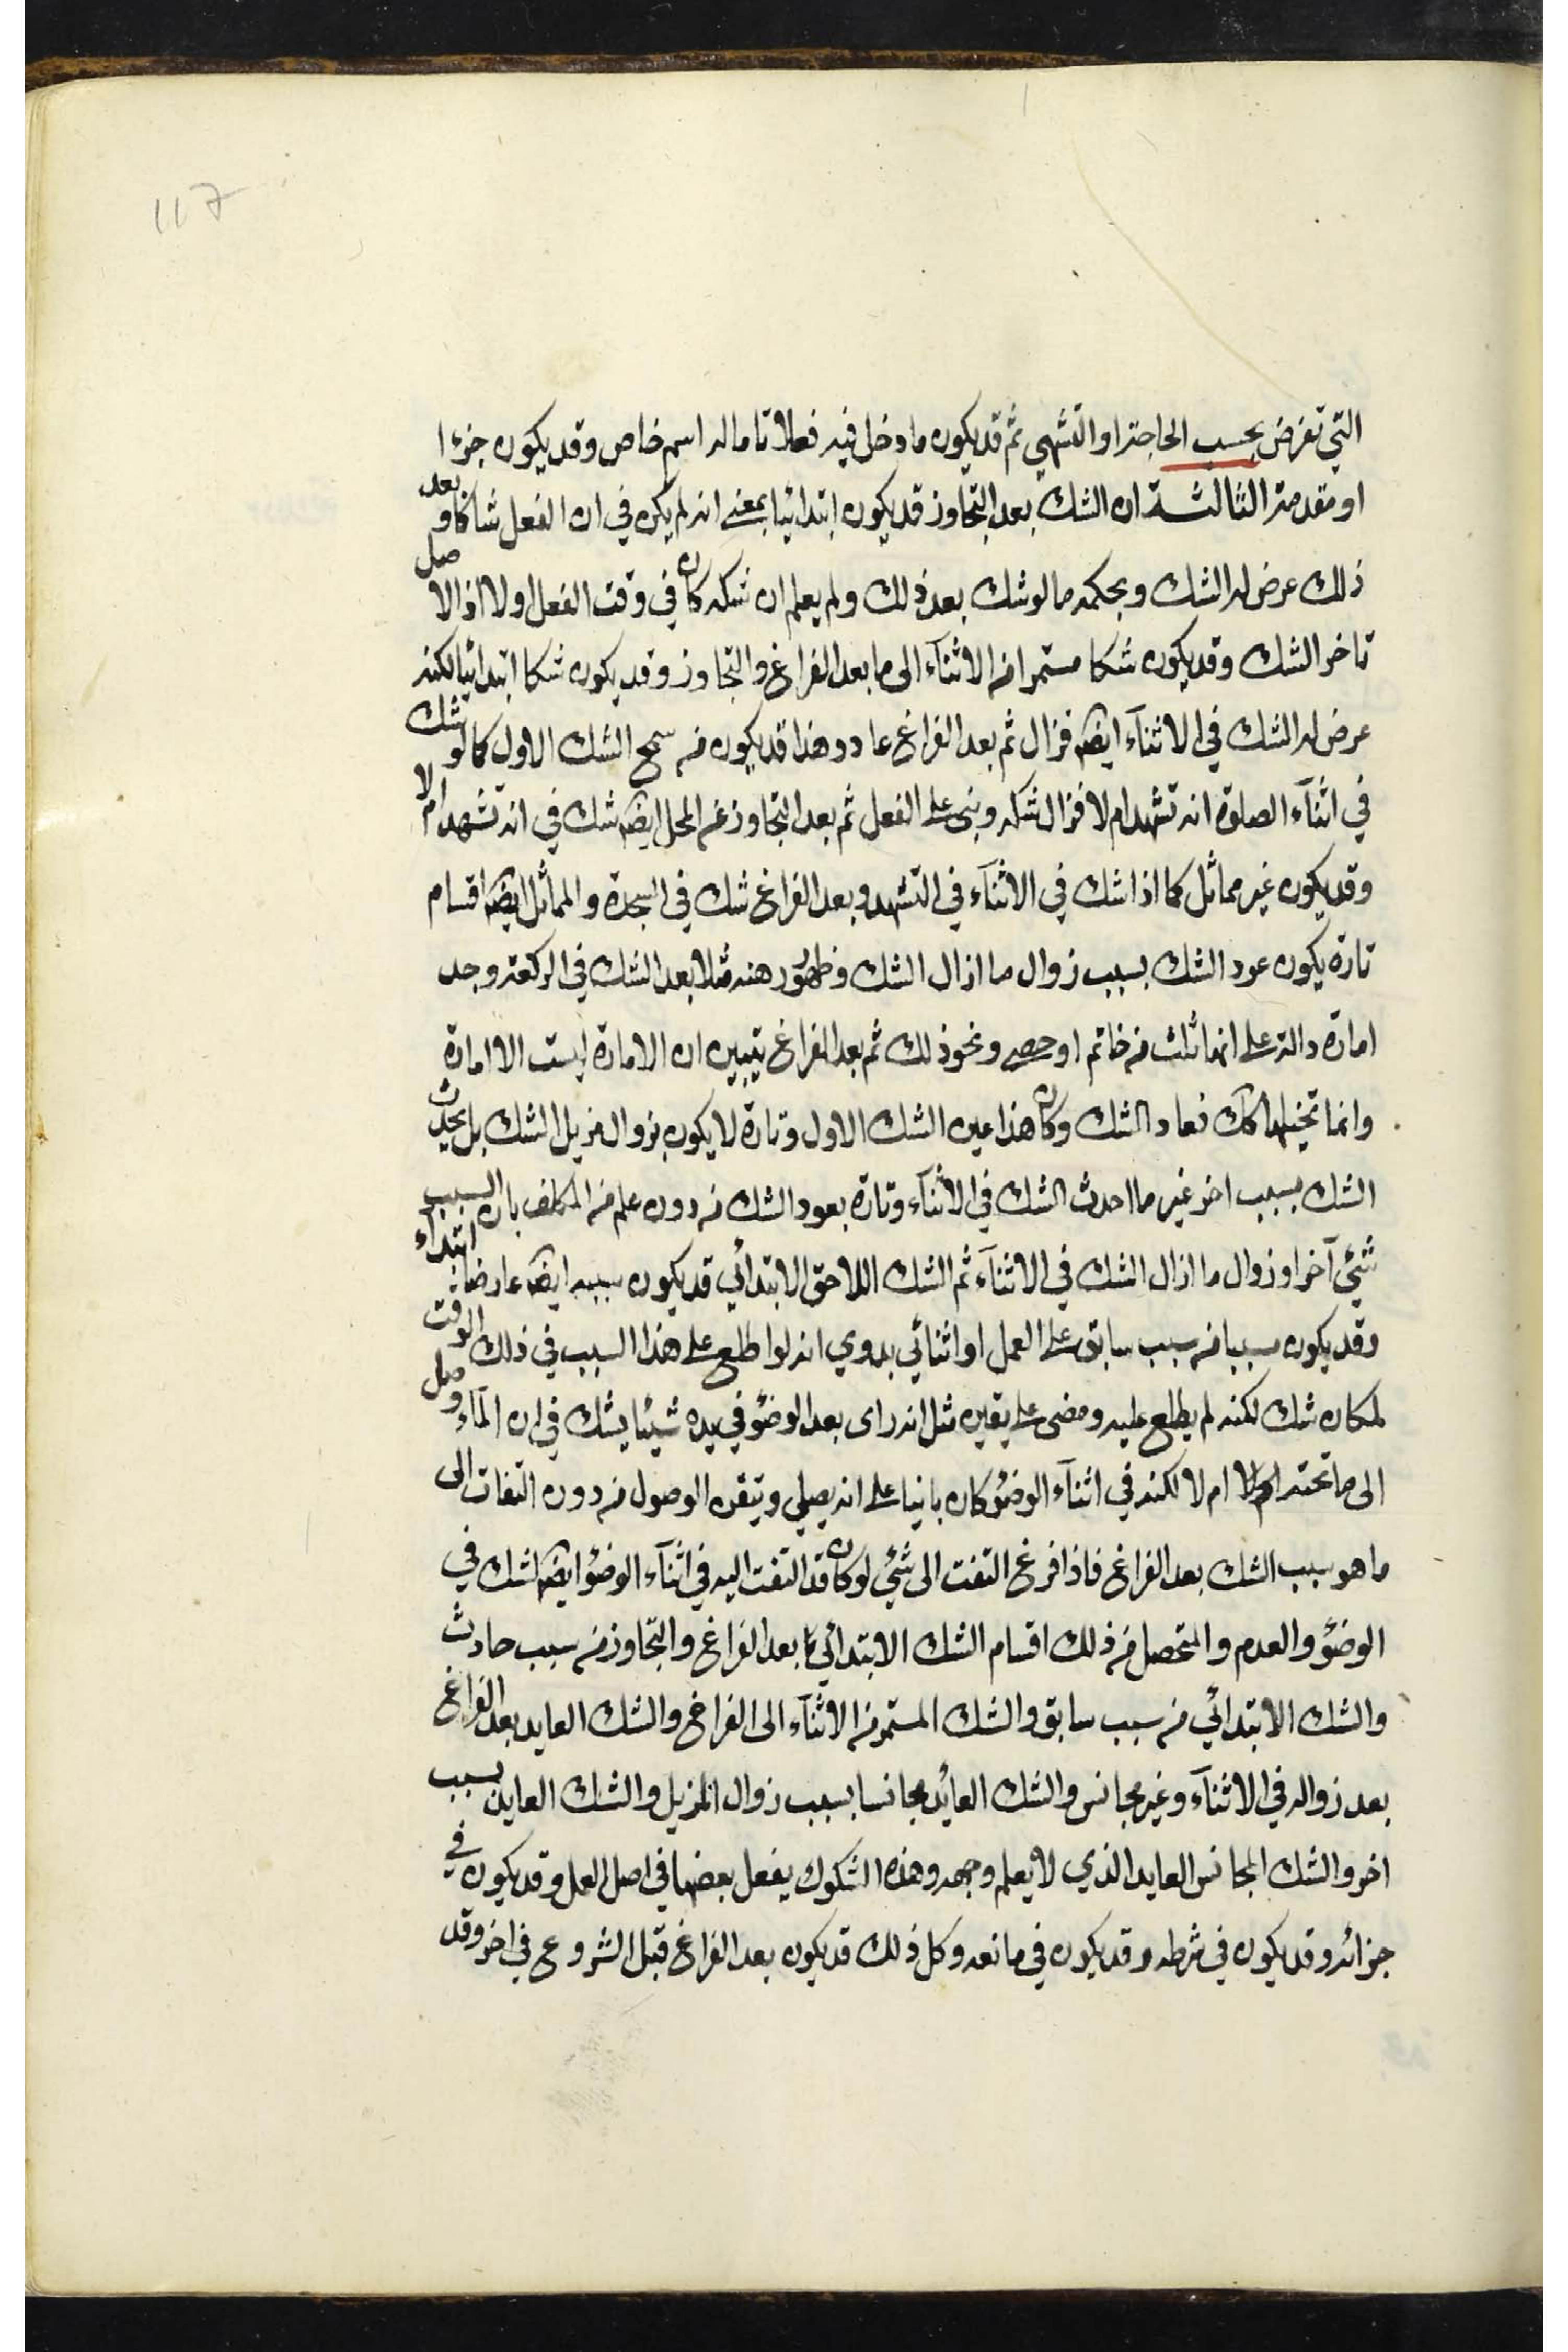 117
التي تفرض بحسب الحاجة او التشهي ثم قد يكون ما دخل فيه فعلا تاما له اسم خاص وقد يكون جزءا
او مقدمة الثالثة ان الشك بعد التجاوز قد يكون ابتدائيا بمعنى انه لم يكن في ان الفعل شاكا و بعد
ذلك عرض له الشك وبحكمه ما لو شك بعد ذلك ولم يعلم ان شكه كان في وقت الفعل اولا اذ الاصل
تاخر الشك وقد يكون شكا مستمرا من الاثنآء الى ما بعد الفراغ والتجاوز وقد يكون شكا ابتدائيا لكنه
عرض له الشك في الاثنآء ايضا فزال ثم بعد الفراغ عاد وهذا قد يكون من سنخ الشك الاول كما لو شك
في اثنآء الصلوة انه تشهد ام لا فزال شكه وبنى على الفعل ثم بعد التجاوز عن المحل ايضا شك في انه تشهد ام لا
وقد يكون غير مماثل كما اذا شك في الاثنآء في التشهد وبعد الفراغ شك في السجدة والمماثل ايضا اقسام
تارة يكون عود الشك بسبب زوال ما ازال الشك وظهور وهنه مثلا بعد الشك في الركعة وجد
امارة دالة على انها ثلث من خاتم او حصى ونحو ذلك ثم بعد الفراغ يتبين ان الامارة ليست الا امارة
وانما تخيلها كك فعاد الشك وكان هذا عين الشك الاول وتارة لا يكون بزوال مزيل الشك بل يحدث
الشك بسبب اخر غير ما احدث الشك في الاثنآء وتارة يعود الشك من دون علم من المكلف بان السبب
شئي آخر او زوال ما ازال الشك في الاثنآء ثم الشك اللاحق الابتدائي قد يكون سببه ايضا عارضا ابتداء
وقد يكون مسببا من سبب سابق على العمل او اثنائي بدوي انه لو اطلع على هذا السبب في ذلك الوقت
لمكان شك لكنه لم يطلع عليه ومضى على يقين مثل انه راى بعد الوضؤ في يده شيئا يشك في ان المآء وصل
الى ما تحته ام لا لكنه في اثنآء الوضؤ كان بانيا على انه يصلي وتيقن الوصول من دون التفات الى
ما هو سبب الشك بعد الفراغ فاذا فرغ التفت الى شئي لو كان قد التفت اليه في اثنآء الوضؤ ايضا لشك في
الوضؤ والعدم والمتحصل من ذلك اقسام الشك الابتدائي بعد الفراغ والتجاوز من سبب حادث
والشك الابتدائي من سبب سابق والشك المستمر من الاثنآء الى الفراغ والشك العايد بعد الفراغ
بعد زواله في الاثنآء وغير مجانس والشك العائد مجانسا بسبب زوال المزيل والشك العايد بسبب
اخر والشك المجانس العايد الذي لا يعلم وجهه وهذه الشكوك يفعل بعضها في اصل العمل وقد يكون في
جزائه وقد يكون في شرطه وقد يكون في مانعه وكل ذلك قد يكون بعد الفراغ قبل الشروع في اخر وقد